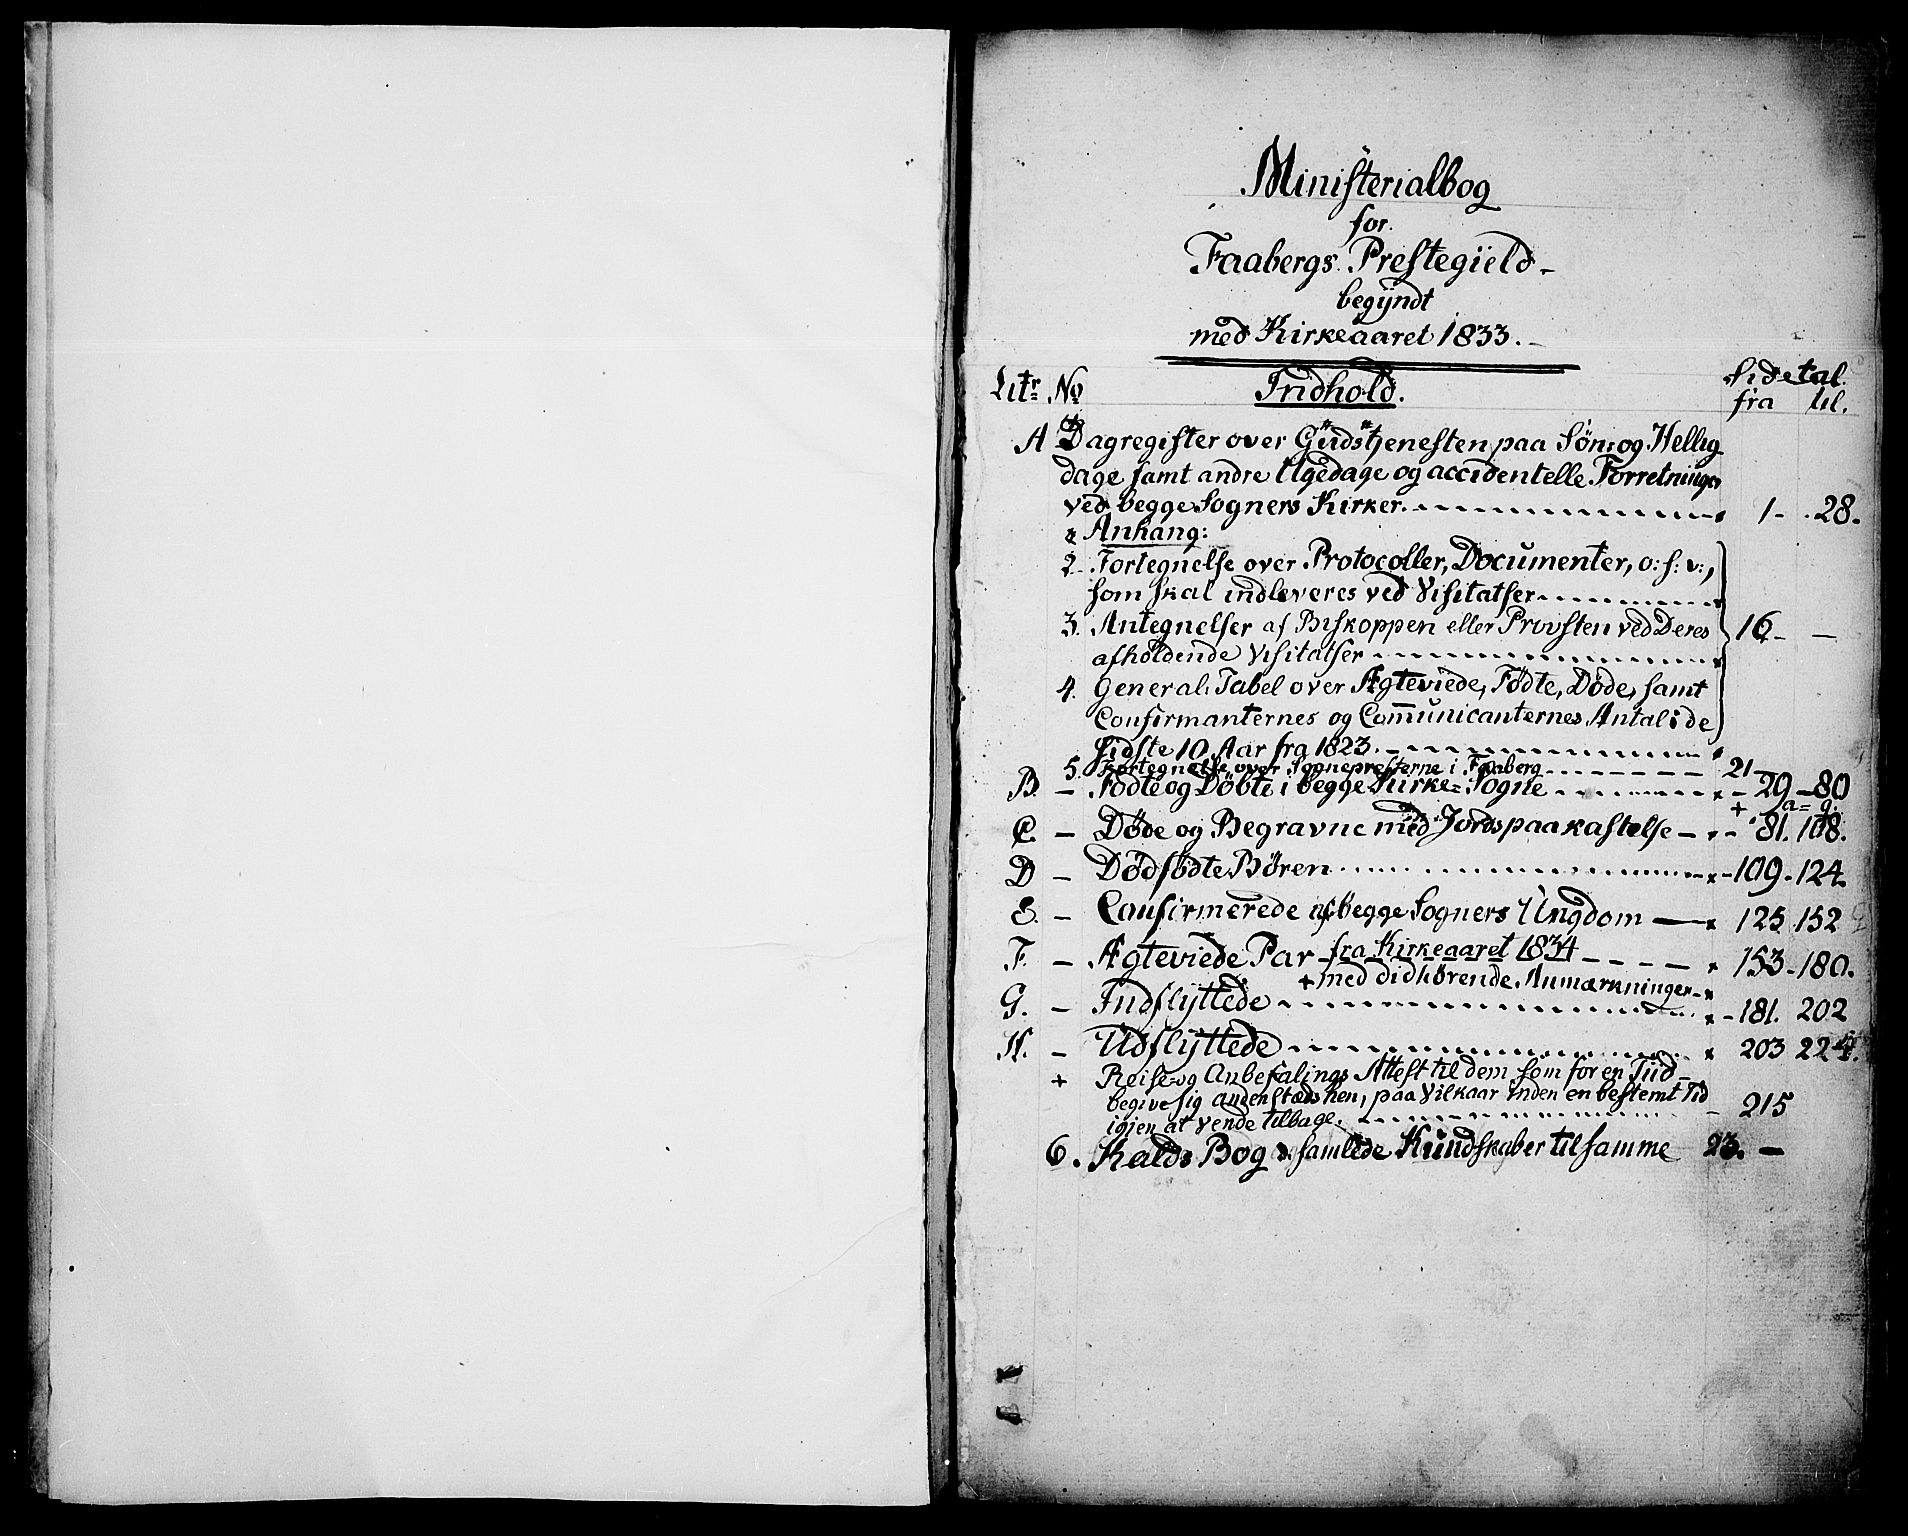 Ministerialbog
for
Faabergs Prestegield
begyndt
med Kirkeaaret 1833.
Litr No Indhold. Sidetal
fra til.
A Dagregister over Gudstjenesten paa Søn: og Hellig
dage samt andre Ugedage og accidentelle Forretninger
ved begge Sogners Kirker. 1 - 28.
Anhang:
2. Fortegnelse over Protocoller, Documenter, o: s: v:,
som skal indleveres ved Visitatser
3. Antegnelser af Biskoppen eller Provsten ved Deres 16 -
afholdende Visitatser
4. General: Tabel over Ægteviede, Fødte, Døde, samt
Confirmanternes og Com̅unicanternes Antal i de
sidste 10 Aar fra 1823.
5. Fortegnelse over Sognepresterne i Faaberg 21
B. - Fødte og Døbte i begge Kirke-Sogne 29 - 80
+ a = g.
C - Døde og Begravne med Jordspaakastelse 81. 108.
D - Dødfødte Børen 109 - 124.
E. - Confirmerede af begge Sogners Ungdom 125 152
F. - Ægteviede Par fra Kirkeaaret 1834 153 - 180.
+ med didhørende Anmærkninger
G. - Indflyttede 181. 202
H. - Udflyttede 203 224.
+ Reise-og Anbefalings Attest til dem som for en Tiid
begive sig andenstæds hen, paa Vilkaar inden en bestemt Tid
igien at vende tilbage. 215
6. Kalds Bog samlede Kundskaber til samme 23. -